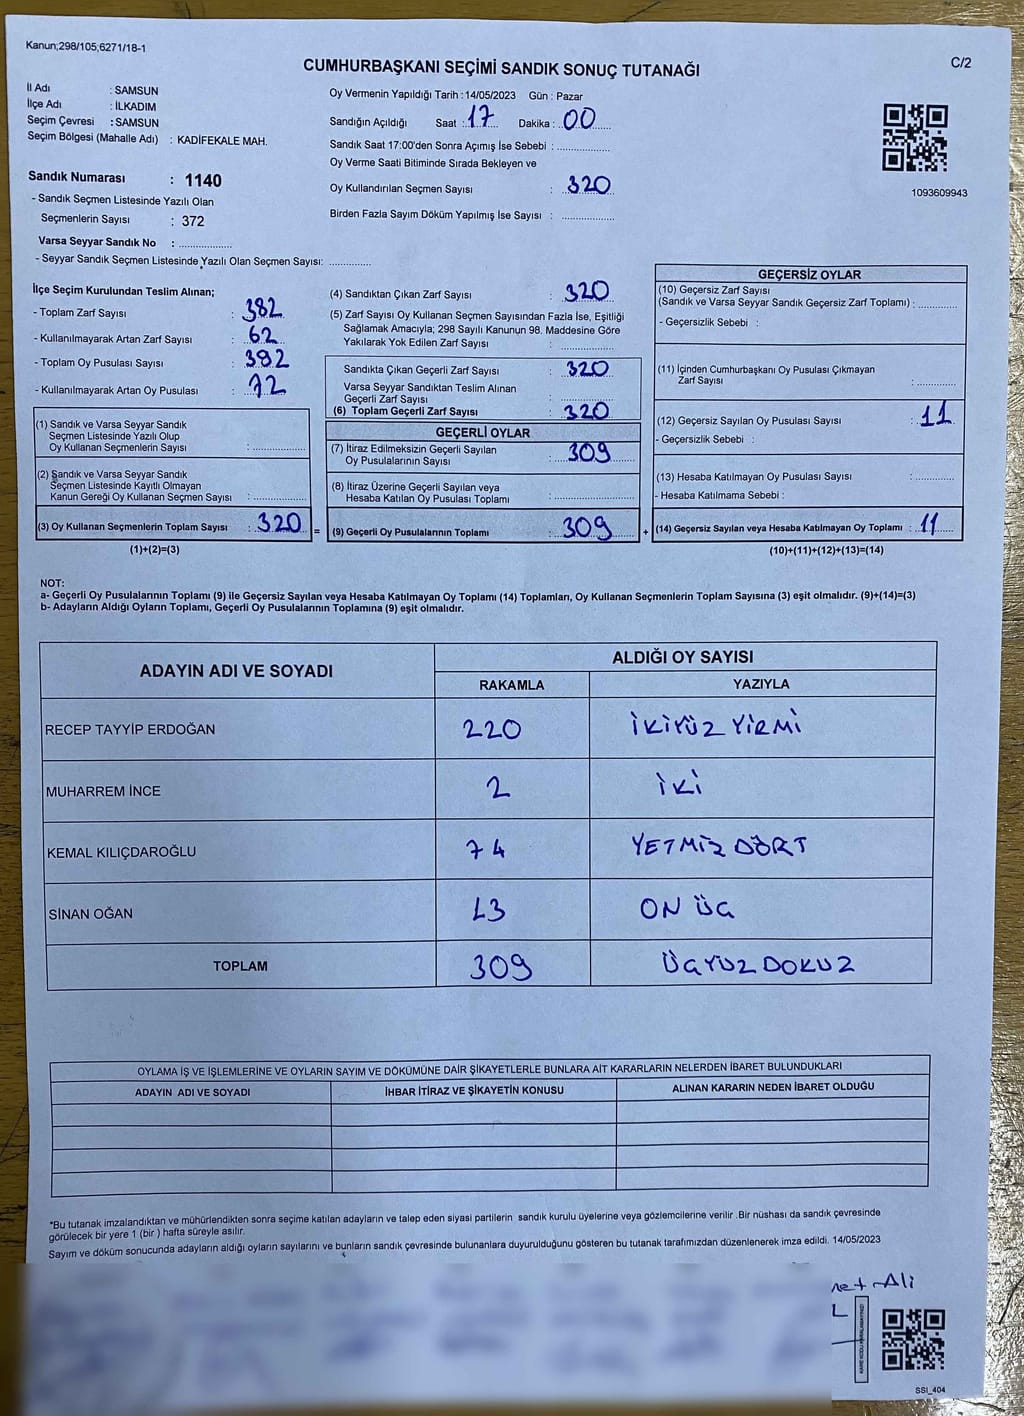 Kanun;298/105;6271/18-1
C/2
CUMHURBAŞKANI SEÇİMİ SANDIK SONUÇ TUTANAĞI
İl Adı : SAMSUN
İlçe Adı : İLKADIM
Seçim Çevresi : SAMSUN
Seçim Bölgesi (Mahalle Adı) : KADİFEKALE MAH.
Sandık Numarası : 1140
- Sandık Seçmen Listesinde Yazılı Olan
Seçmenlerin Sayısı : 372
Varsa Seyyar Sandık No : ..................
- Seyyar Sandık Seçmen Listesinde Yazılı Olan Seçmen Sayısı: ..............
Oy Vermenin Yapıldığı Tarih :14/05/2023 Gün : Pazar
Sandığın Açıldığı Saat : 17 Dakika : 00
Sandık Saat 17:00'den Sonra Açımış İse Sebebi : ..................
Oy Verme Saati Bitiminde Sırada Bekleyen ve
Oy Kullandırılan Seçmen Sayısı : 320
Birden Fazla Sayım Döküm Yapılmış İse Sayısı : ..................
1093609943
İlçe Seçim Kurulundan Teslim Alınan;
- Toplam Zarf Sayısı : 382
- Kullanılmayarak Artan Zarf Sayısı : 62
- Toplam Oy Pusulası Sayısı : 392
- Kullanılmayarak Artan Oy Pusulası : 72
(1) Sandık ve Varsa Seyyar Sandık
Seçmen Listesinde Yazılı Olup
Oy Kullanan Seçmenlerin Sayısı : ..................
(2) Sandık ve Varsa Seyyar Sandık
Seçmen Listesinde Kayıtlı Olmayan
Kanun Gereği Oy Kullanan Seçmen Sayısı : ..................
(3) Oy Kullanan Seçmenlerin Toplam Sayısı : 320 =
(1)+(2)=(3)
(4) Sandıktan Çıkan Zarf Sayısı : 320
(5) Zarf Sayısı Oy Kullanan Seçmen Sayısından Fazla İse, Eşitliği
Sağlamak Amacıyla; 298 Sayılı Kanunun 98. Maddesine Göre
Yakılarak Yok Edilen Zarf Sayısı : ..................
Sandıkta Çıkan Geçerli Zarf Sayısı : 320
Varsa Seyyar Sandıktan Teslim Alınan
Geçerli Zarf Sayısı : ..................
(6) Toplam Geçerli Zarf Sayısı : 320
GEÇERLİ OYLAR
(7) İtiraz Edilmeksizin Geçerli Sayılan
Oy Pusulalarının Sayısı : 309
(8) İtiraz Üzerine Geçerli Sayılan veya
Hesaba Katılan Oy Pusulası Toplamı : ..................
(9) Geçerli Oy Pusulalarının Toplamı : 309 +
GEÇERSİZ OYLAR
(10) Geçersiz Zarf Sayısı
(Sandık ve Varsa Seyyar Sandık Geçersiz Zarf Toplamı) : ..............
- Geçersizlik Sebebi :
(11) İçinden Cumhurbaşkanı Oy Pusulası Çıkmayan
Zarf Sayısı : ..............
(12) Geçersiz Sayılan Oy Pusulası Sayısı : 11
- Geçersizlik Sebebi :
(13) Hesaba Katılmayan Oy Pusulası Sayısı : ..............
- Hesaba Katılmama Sebebi :
(14) Geçersiz Sayılan veya Hesaba Katılmayan Oy Toplamı : 11
(10)+(11)+(12)+(13)=(14)
NOT:
a- Geçerli Oy Pusulalarının Toplamı (9) ile Geçersiz Sayılan veya Hesaba Katılmayan Oy Toplamı (14) Toplamları, Oy Kullanan Seçmenlerin Toplam Sayısına (3) eşit olmalıdır. (9)+(14)=(3)
b- Adayların Aldığı Oyların Toplamı, Geçerli Oy Pusulalarının Toplamına (9) eşit olmalıdır.
ADAYIN ADI VE SOYADI ALDIĞI OY SAYISI
RAKAMLA YAZIYLA
RECEP TAYYİP ERDOĞAN 220 İKİYÜZ YİRMİ
MUHARREM İNCE 2 İKİ
KEMAL KILIÇDAROĞLU 74 YETMİZ DÖRT
SİNAN OĞAN 13 ON ÜÇ
TOPLAM 309 ÜÇYÜZ DOKUZ
OYLAMA İŞ VE İŞLEMLERİNE VE OYLARIN SAYIM VE DÖKÜMÜNE DAİR ŞİKAYETLERLE BUNLARA AİT KARARLARIN NELERDEN İBARET BULUNDUKLARI
ADAYIN ADI VE SOYADI İHBAR İTİRAZ VE ŞİKAYETİN KONUSU ALINAN KARARIN NEDEN İBARET OLDUĞU
*Bu tutanak imzalandıktan ve mühürlendikten sonra seçime katılan adayların ve talep eden siyasi partilerin sandık kurulu üyelerine veya gözlemcilerine verilir .Bir nüshası da sandık çevresinde
görülecek bir yere 1 (bir ) hafta süreyle asılır.
Sayım ve döküm sonucunda adayların aldığı oyların sayılarını ve bunların sandık çevresinde bulunanlara duyurulduğunu gösteren bu tutanak tarafımızdan düzenlenerek imza edildi. 14/05/2023
Ali
SSI_404